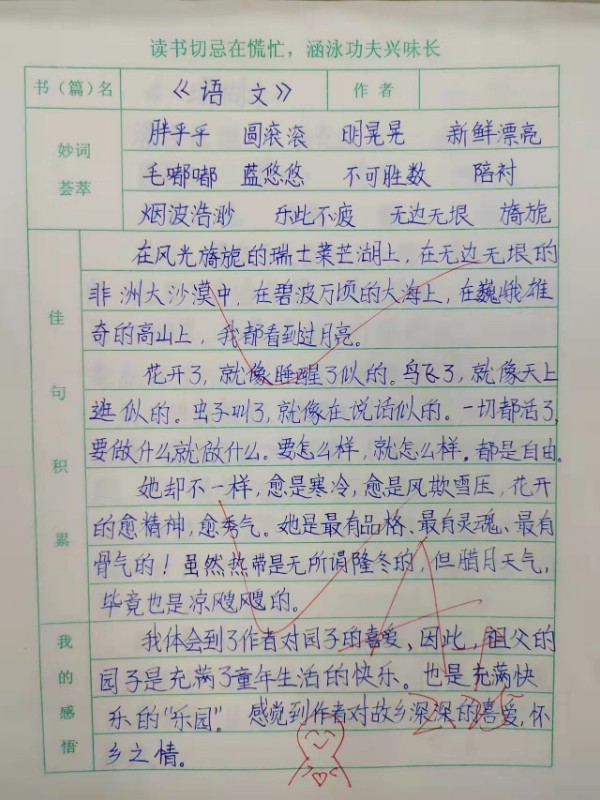 读书切忌在慌忙，涵泳功夫兴味长
书（篇）名 《语文》 作者
妙词荟萃
胖乎乎 圆滚滚 明晃晃 新鲜漂亮
毛嘟嘟 蓝悠悠 不可胜数 陪衬
烟波浩渺 乐此不疲 无边无垠 旖旎
佳句积累
在风光旖旎的瑞士莱芒湖上，在无边无垠的
非洲大沙漠中，在碧波万顷的大海上，在巍峨雄
奇的高山上，我都看到过月亮。
花开了，就像睡醒了似的。鸟飞了，就像天上
逛似的。虫子叫了，就像在说话似的。一切都活了，
要做什么就做什么。要怎么样，就怎么样，都是自由。
她却不一样，愈是寒冷，愈是风欺雪压，花开
的愈精神，愈秀气。她是最有品格、最有灵魂、最有
骨气的！虽然热带是无所谓隆冬的，但腊月天气，
毕竟也是凉飕飕的。
我的感悟
我体会到了作者对园子的喜爱，因此，祖父的
园子是充满了童年生活的快乐。也是充满快
乐的“乐园”。感觉到作者对故乡深深的喜爱，怀
乡之情。